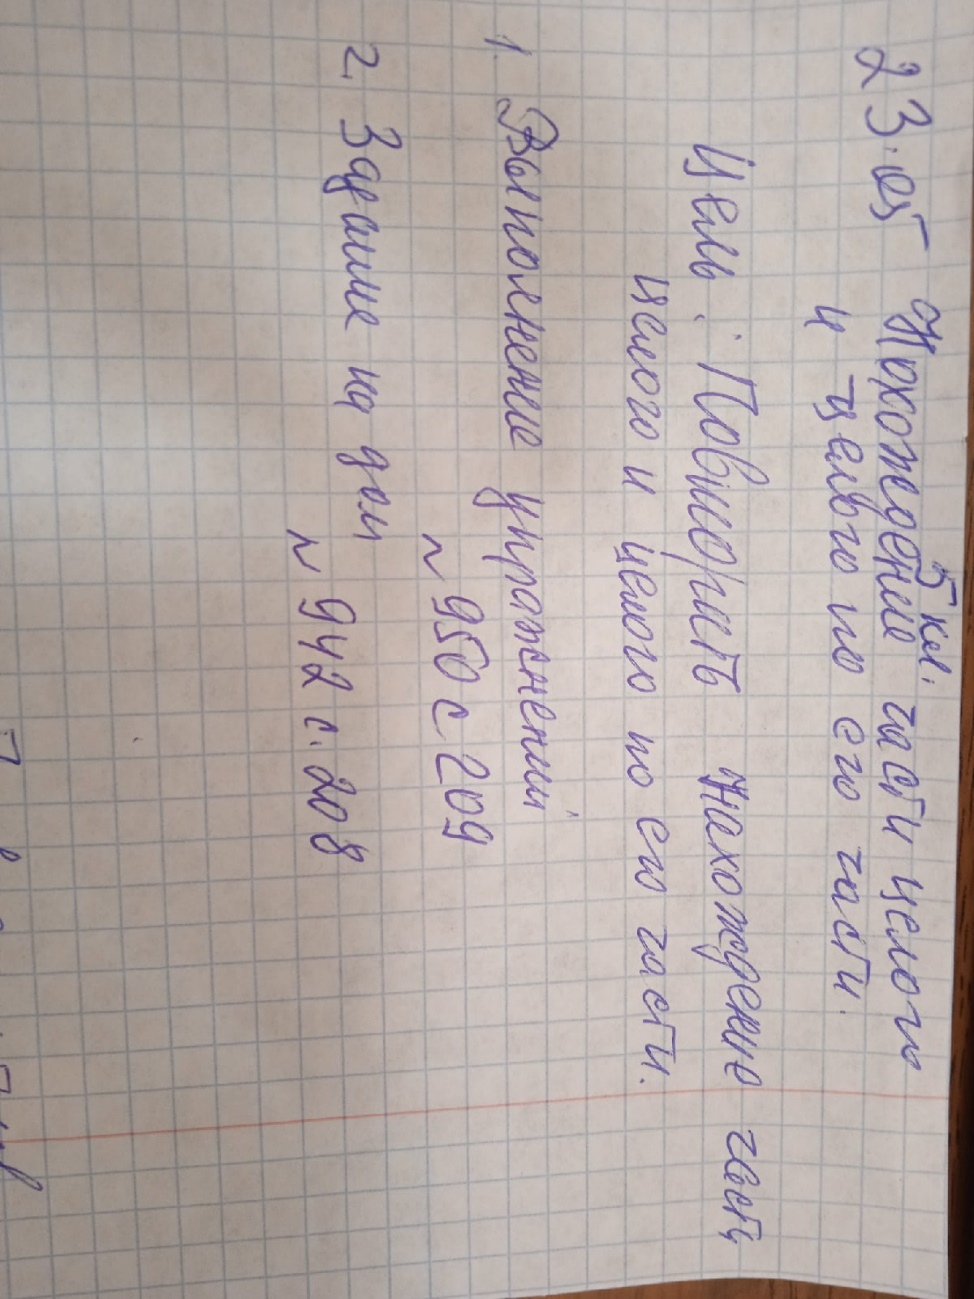 5 кл.
23.05 Нахождение части целого
и целого по его части.
Цель: Повторить нахождение части
целого и целого по его части.
1. Выполнение упражнений
~ 950 с 209
2. Задание на дом
~ 942 с. 208